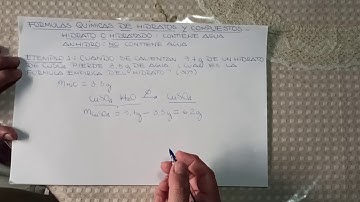 FORMULAS QUÍMICAS DE HIDRATOS Y COMPUESTOS
HIDRATO O HIDRATADO: CONTIENE AGUA
ANHIDRO NO CONTIENE AGUA
EJEMPLO 1: CUANDO SE CALIENTAN 9.7g DE UN HIDRATO
DE CuSO4 PIERDE 3.5g DE AGUA ¿CUAL ES LA
FORMULA EMPIRICA DEL HIDRATO?
mH2O = 3.5g
CuSO4 H2O → CuSO4
mCuSO4 = 9.7g - 3.5g = 6.2g